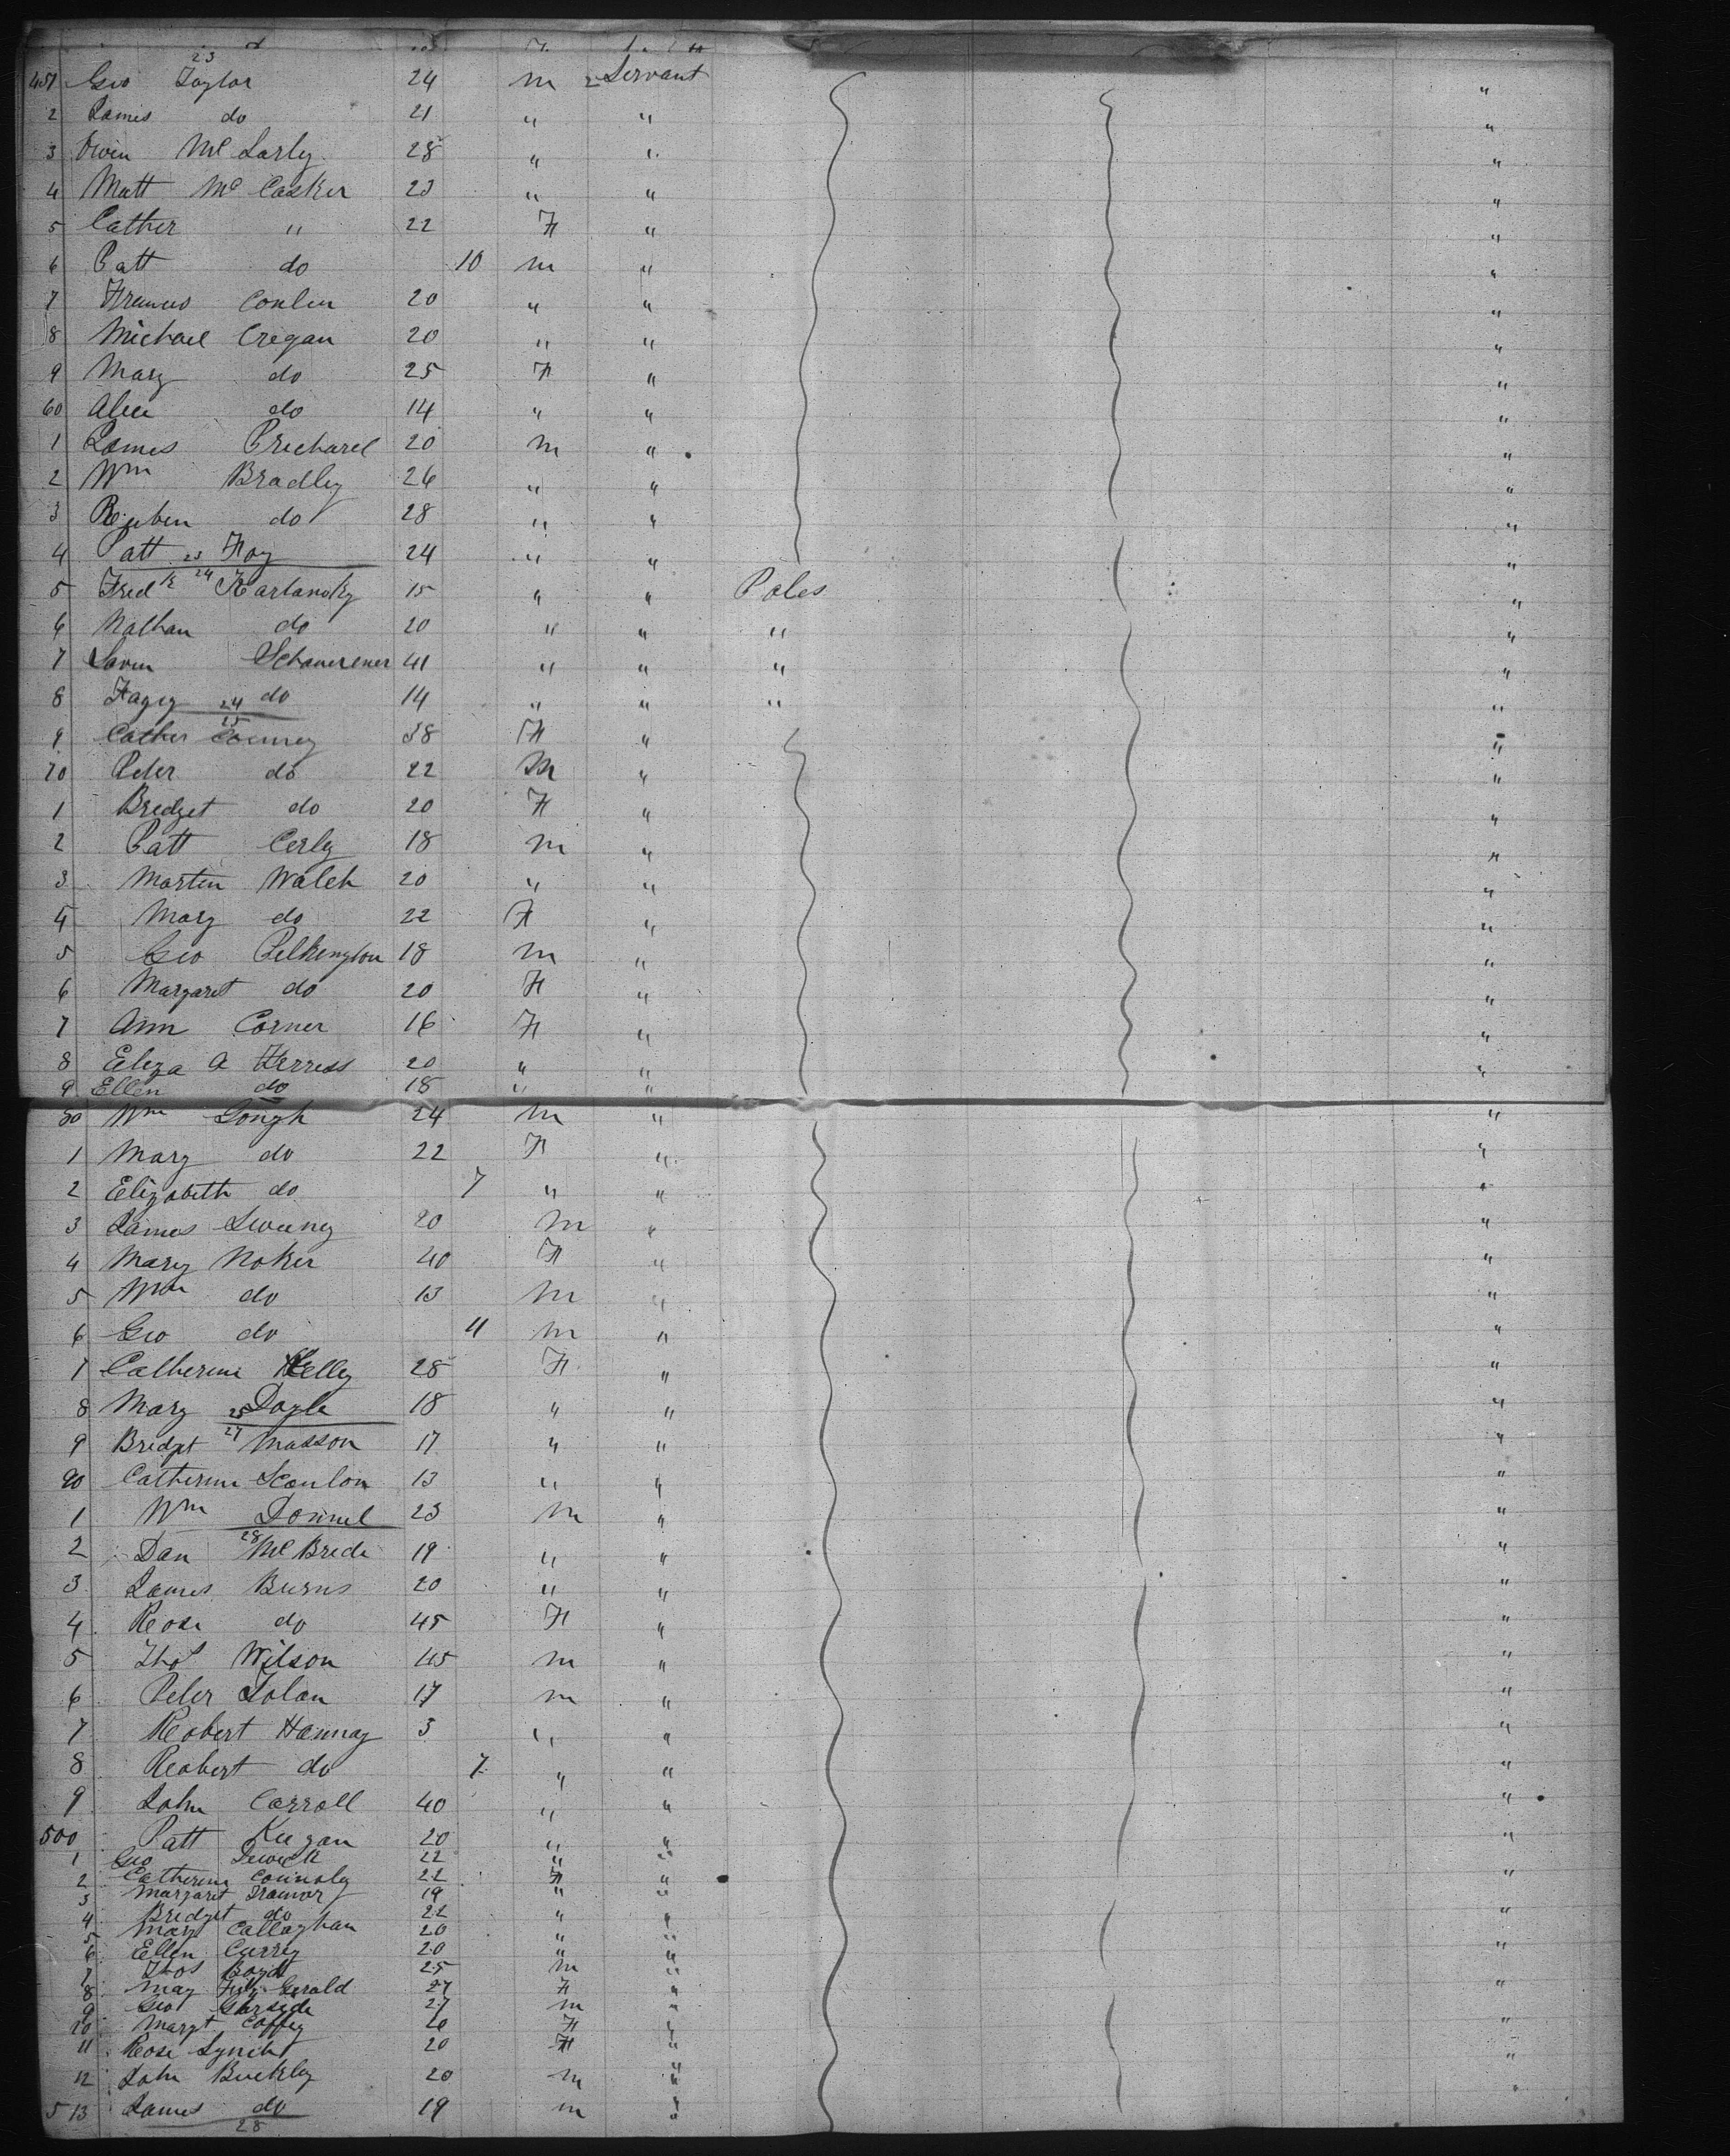 23
451 Geo Taylor 24 m Servant "
2 James do 21 " " "
3 Owen Mc Larly 28 " " "
4 Matt Mc Casker 23 " " "
5 Cather " 22 F " "
6 Patt do 10 m " "
7 Francis Conlen 20 " " "
8 Michael Cregan 20 " " "
9 Mary do 25 F " "
60 Alice do 14 " " "
1 James Prichard 20 m " "
2 Wm Bradley 26 " " "
3 Reuben do 28 " " "
4 Patt 23 Foy 24 " " "
5 Fredk 24 Karlansky 15 " " Poles "
6 Nathan do 20 " " " "
7 Schauerener 41 " " " "
8 24 do 14 " " " "
25
9 Cather 38 F " "
70 Peter do 22 M " "
1 Bridget do 20 F " "
2 Patt Cerly 18 m " "
3 Martin Walch 20 " " "
4 Mary do 22 F " "
5 Geo Pelkington 18 m " "
6 Margaret do 20 F " "
7 Ann Corner 16 F " "
8 Eliza A Ferress 20 " " "
9 Ellen do 18 " "
80 Wm Gough 24 m " "
1 Mary do 22 F " "
2 Elizabeth do 7 " " "
3 James Sweeney 20 m " "
4 Mary Noker 40 F " "
5 Wm do 13 m " "
6 Geo do 11 m " "
7 Catherine Kelley 28 F " "
8 Mary 25 Doyle 18 " " "
9 Bridget 27 Masson 17 " " "
90 Catherine Scanlon 13 " " "
1 Wm Donnel 23 m " "
2 Dan 28 Mc Bride 19 " " "
3 James Burns 20 " " "
4 Rose do 45 F " "
5 Thos Wilson 45 m " "
6 Peter Tolan 17 m " "
7 Robert Hannay 3 " " "
8 Robert do 7 " " "
9 John Carroll 40 " " "
500 Patt Keegan 20 " " "
1 Geo Dewick 22 " "
2 Catherine Connoley 22 F " "
3 Margaret Trainor 19 " "
4 Bridget do 22 " " "
5 Mary Callaghan 20 " "
6 Ellen Currey 20 " " "
7 Thos Boydt 25 m "
8 May Fitz Gerald 27 F " "
9 Geo Garside 27 m "
10 Margt Coffey 20 F " "
11 Rose Lynch 20 F " "
12 John Buckley 20 m " "
513 James do 19 m "
28